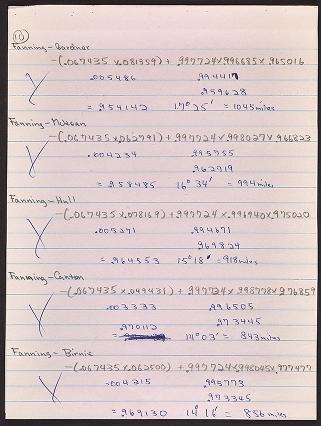 10
Fanning-Gardner
-(.067435×.081359) + .997724×.996685×.965016
.005486 .994417
.959628
= .954142 17°25' = 1045 miles
Fanning-McKean
-(.067435×.062791) + .997724×.998027×.966823
.004234 .995755
.962719
= .958485 16°34' = 994 miles
Fanning-Hull
-(.067435×.078169) + .997724×.996940×.975020
.005271 .994671
.969824
= .964553 15°18' = 918 miles
Fanning-Canton
-(.067435×.049431) + .997724×.998778×.976859
.003333 .996505
.970112 .973445
= 14°03' = 843 miles
Fanning-Birnie
-(.067435×.062500) + .997724×.998045×.977477
.004215 .995773
.973345
= .969130 14°16' = 856 miles